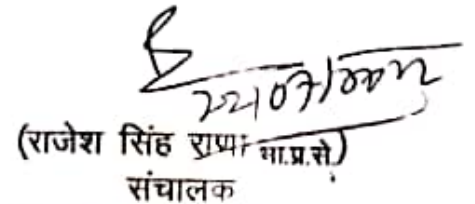 22/07/2022
(राजेश सिंह राणा भा.प्र.से)
संचालक